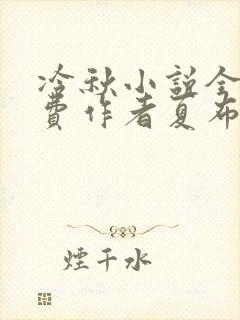 冷秋小說全
費作者夏布
煙千水